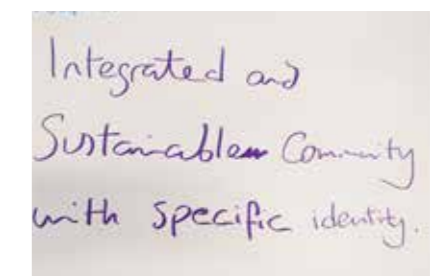 Integrated and
Sustainable Community
with specific identity.